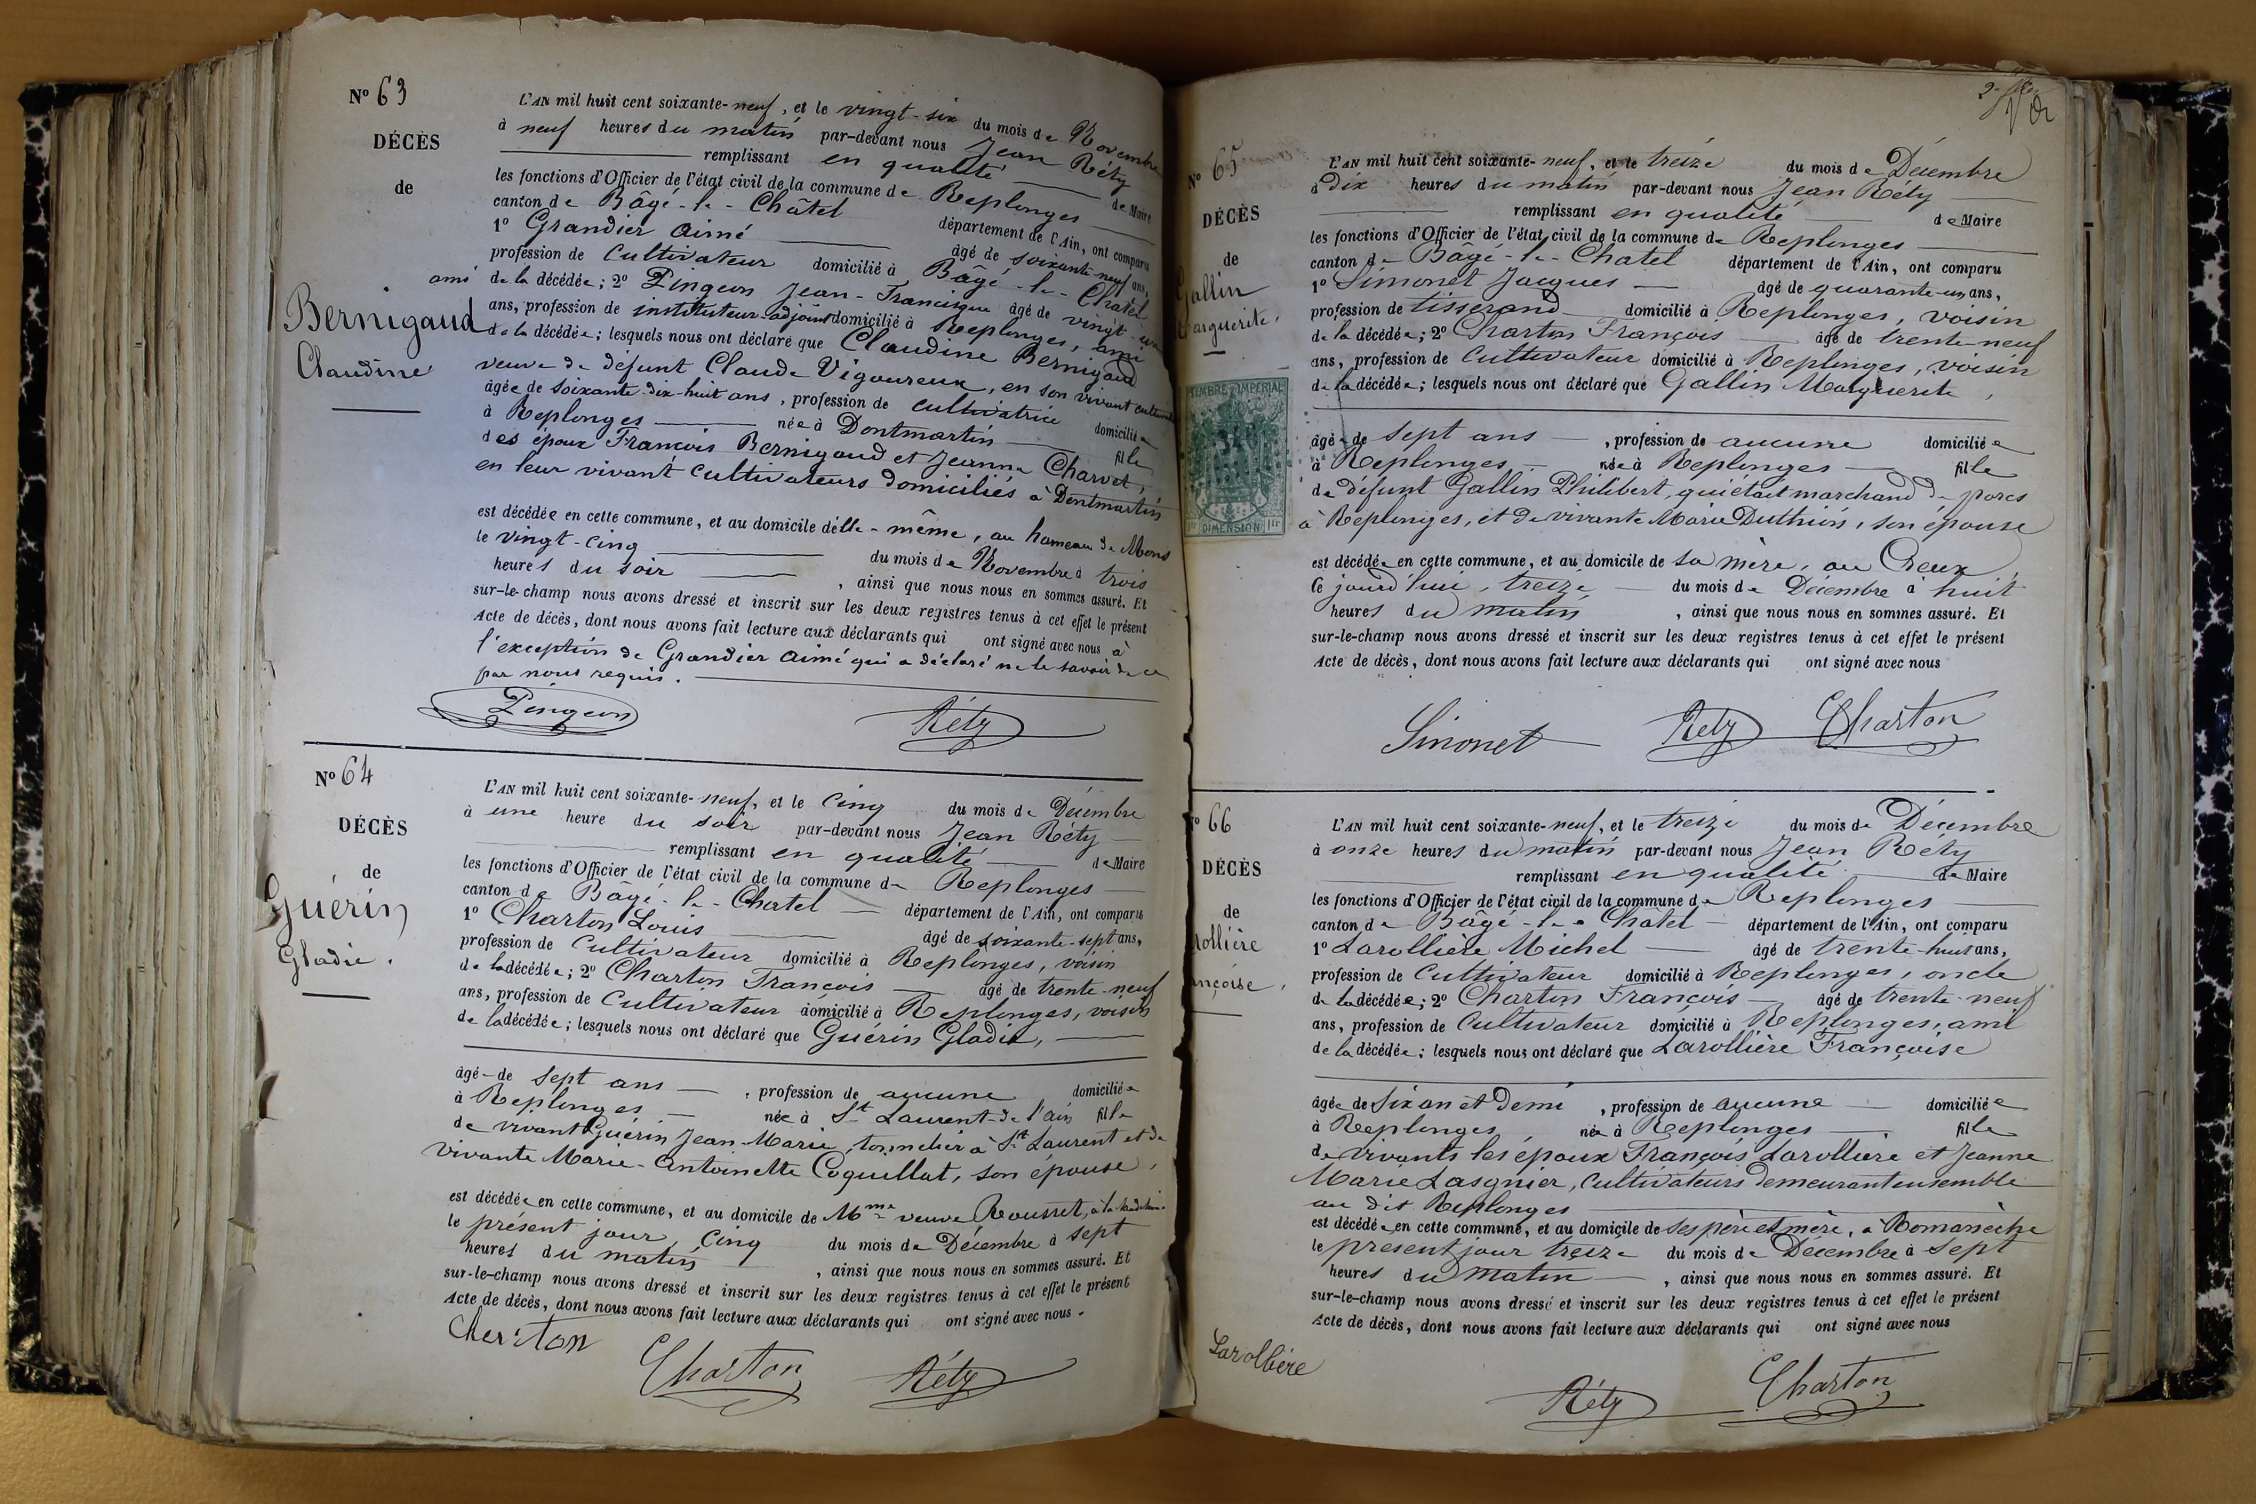 N° 63
DÉCÈS
de
Bernigaud
Claudine
L'AN mil huit cent soixante-neuf, et le vingt-six du mois de Novembre
à neuf heures du matin par-devant nous Jean Réty
remplissant en qualité de Maire
les fonctions d'Officier de l'état civil de la commune de Replonges
canton de Bâgé-le-Châtel département de l'Ain, ont comparu
1° Grandier Aimé âgé de soixante-neuf ans,
profession de Cultivateur domicilié à Bâgé-le-Châtel
ami de la décédée; 2° Pingeon Jean-Francisque âgé de vingt-un
ans, profession de instituteur-adjoint domicilié à Replonges, ami
de la décédée; lesquels nous ont déclaré que Claudine Bernigaud
veuve de défunt Claude Vigoureux, en son vivant
âgée de soixante-dix-huit ans, profession de cultivatrice domiciliée
à Replonges née à Dontmartin fille
des époux François Bernigaud et Jeanne Charvet,
en leur vivant cultivateurs domiciliés à Dontmartin
est décédée en cette commune, et au domicile d'elle-même, au hameau de Mons
le vingt-cinq du mois de Novembre à trois
heures du soir, ainsi que nous nous en sommes assuré. Et
sur-le-champ nous avons dressé et inscrit sur les deux registres tenus à cet effet le présent
Acte de décès, dont nous avons fait lecture aux déclarants qui ont signé avec nous à
l'exception de Grandier Aimé qui a déclaré ne le savoir de ce
par nous requis.
Pingeon Réty
N° 64
DÉCÈS
de
Guérin
Gladie.
L'AN mil huit cent soixante-neuf, et le cinq du mois de Décembre
à une heure du soir par-devant nous Jean Réty
remplissant en qualité de Maire
les fonctions d'Officier de l'état civil de la commune de Replonges
canton de Bâgé-le-Chatel département de l'Ain, ont comparu
1° Charton Louis âgé de soixante-sept ans,
profession de Cultivateur domicilié à Replonges, voisin
de la décédée; 2° Charton François âgé de trente-neuf
ans, profession de Cultivateur domicilié à Replonges, voisin
de la décédée; lesquels nous ont déclaré que Guérin Gladie,
âgé-de sept ans, profession de aucune domiciliée
à Replonges née à St Laurent-de l'ain fille
de vivant Guérin Jean-Marie, tonnelier à St Laurent et de
vivante Marie-Antoinette Coquillat, son épouse,
est décédée en cette commune, et au domicile de Mme veuve Rousset, à la
le présent jour cinq du mois de Décembre à sept
heures du matin, ainsi que nous nous en sommes assuré. Et
sur-le-champ nous avons dressé et inscrit sur les deux registres tenus à cet effet le présent
Acte de décès, dont nous avons fait lecture aux déclarants qui ont signé avec nous.
Cherton Charton Réty
N° 65
DÉCÈS
de
Gallin
Marguerite.
TIMBRE IMPÉRIAL
DIMENSION
L'AN mil huit cent soixante-neuf, et le treize du mois de Décembre
à dix heures du matin par-devant nous Jean Réty
remplissant en qualité de Maire
les fonctions d'Officier de l'état civil de la commune de Replonges
canton de Bâgé-le-Chatel département de l'Ain, ont comparu
1° Simonet Jacques âgé de quarante-un ans,
profession de tisserand domicilié à Replonges, voisin
de la décédée; 2° Charton François âgé de trente-neuf
ans, profession de Cultivateur domicilié à Replonges, voisin
de la décédée; lesquels nous ont déclaré que Gallin Marguerite,
âgée de sept ans, profession de aucune domiciliée
à Replonges née à Replonges fille
de défunt Gallin Philibert, qui était marchand de porcs
à Replonges, et de vivante Marie Duthion, son épouse
est décédée en cette commune, et au domicile de sa mère, au Creux
Ce jourd'hui, treize du mois de Décembre à huit
heures du matin, ainsi que nous nous en sommes assuré. Et
sur-le-champ nous avons dressé et inscrit sur les deux registres tenus à cet effet le présent
Acte de décès, dont nous avons fait lecture aux déclarants qui ont signé avec nous
Simonet Réty Charton
66
DÉCÈS
de
rollière
nçoise,
L'AN mil huit cent soixante-neuf, et le treize du mois de Décembre
à onze heures du matin par-devant nous Jean Réty
remplissant en qualité de Maire
les fonctions d'Officier de l'état civil de la commune de Replonges
canton de Bâgé-le-Châtel département de l'Ain, ont comparu
1° Larollière Michel âgé de trente-huit ans,
profession de Cultivateur domicilié à Replonges, oncle
de la décédée; 2° Charton François âgé de trente-neuf
ans, profession de Cultivateur domicilié à Replonges, ami
de la décédée; lesquels nous ont déclaré que Larollière Françoise
âgée de Six an et demi, profession de aucune domiciliée
à Replonges née à Replonges fille
de vivants les époux François Larollière et Jeanne
Marie Lasgnier, Cultivateurs demeurant ensemble
au dit Replonges
est décédée en cette commune, et au domicile de ses père et mère, à Romanèche
le présent jour treize du mois de Décembre à sept
heures du matin, ainsi que nous nous en sommes assuré. Et
sur-le-champ nous avons dressé et inscrit sur les deux registres tenus à cet effet le présent
Acte de décès, dont nous avons fait lecture aux déclarants qui ont signé avec nous
Larollière Réty Charton